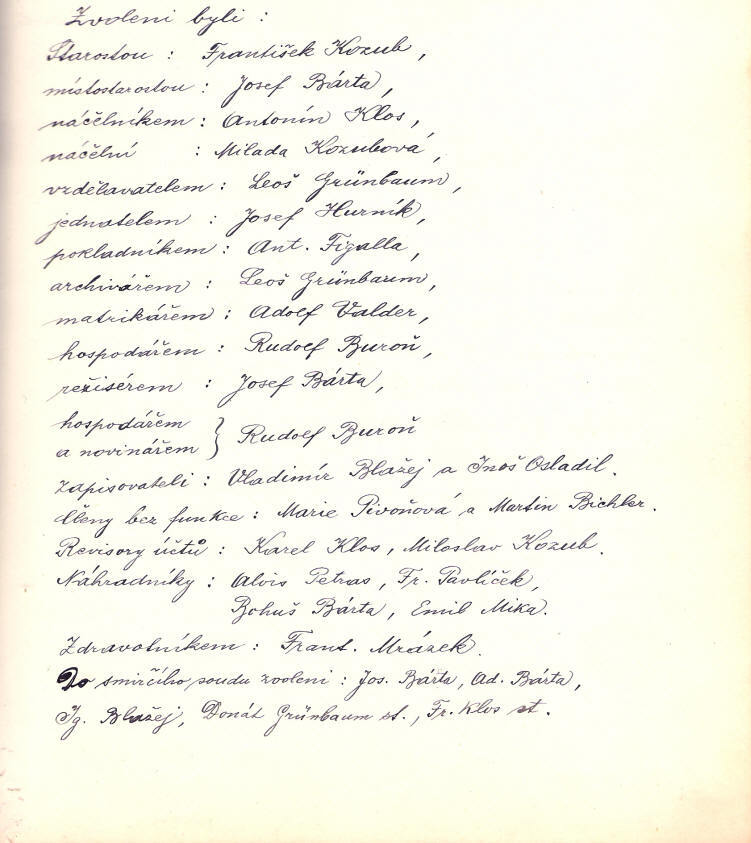 Zvoleni byli :
Starostou : František Kozub,
místostarostou : Josef Bárta,
náčelníkem : Antonín Klos,
náčelní : Milada Kozubová,
vzdělavatelem : Leoš Grünbaum,
jednatelem : Josef Hurník,
pokladníkem : Ant. Figalla,
archivářem : Leoš Grünbaum,
matrikářem : Adolf Valder,
hospodářem : Rudolf Buroň,
režisérem : Josef Bárta,
hospodářem
a novinářem } Rudolf Buroň
zapisovateli : Vladimír Blažej a Inoš Osladil.
Členy bez funkce : Marie Pivoňová a Martin Bichler.
Revisory účtů : Karel Klos, Miloslav Kozub.
Náhradníky : Alois Petras, Fr. Pavlíček,
Bohuš Bárta, Emil Mika.
Zdravotníkem : Frant. Mrázek.
Do smírčího soudu zvoleni : Jos. Bárta, Ad. Bárta,
Ig. Blažej, Donát Grünbaum st., Fr. Klos st.